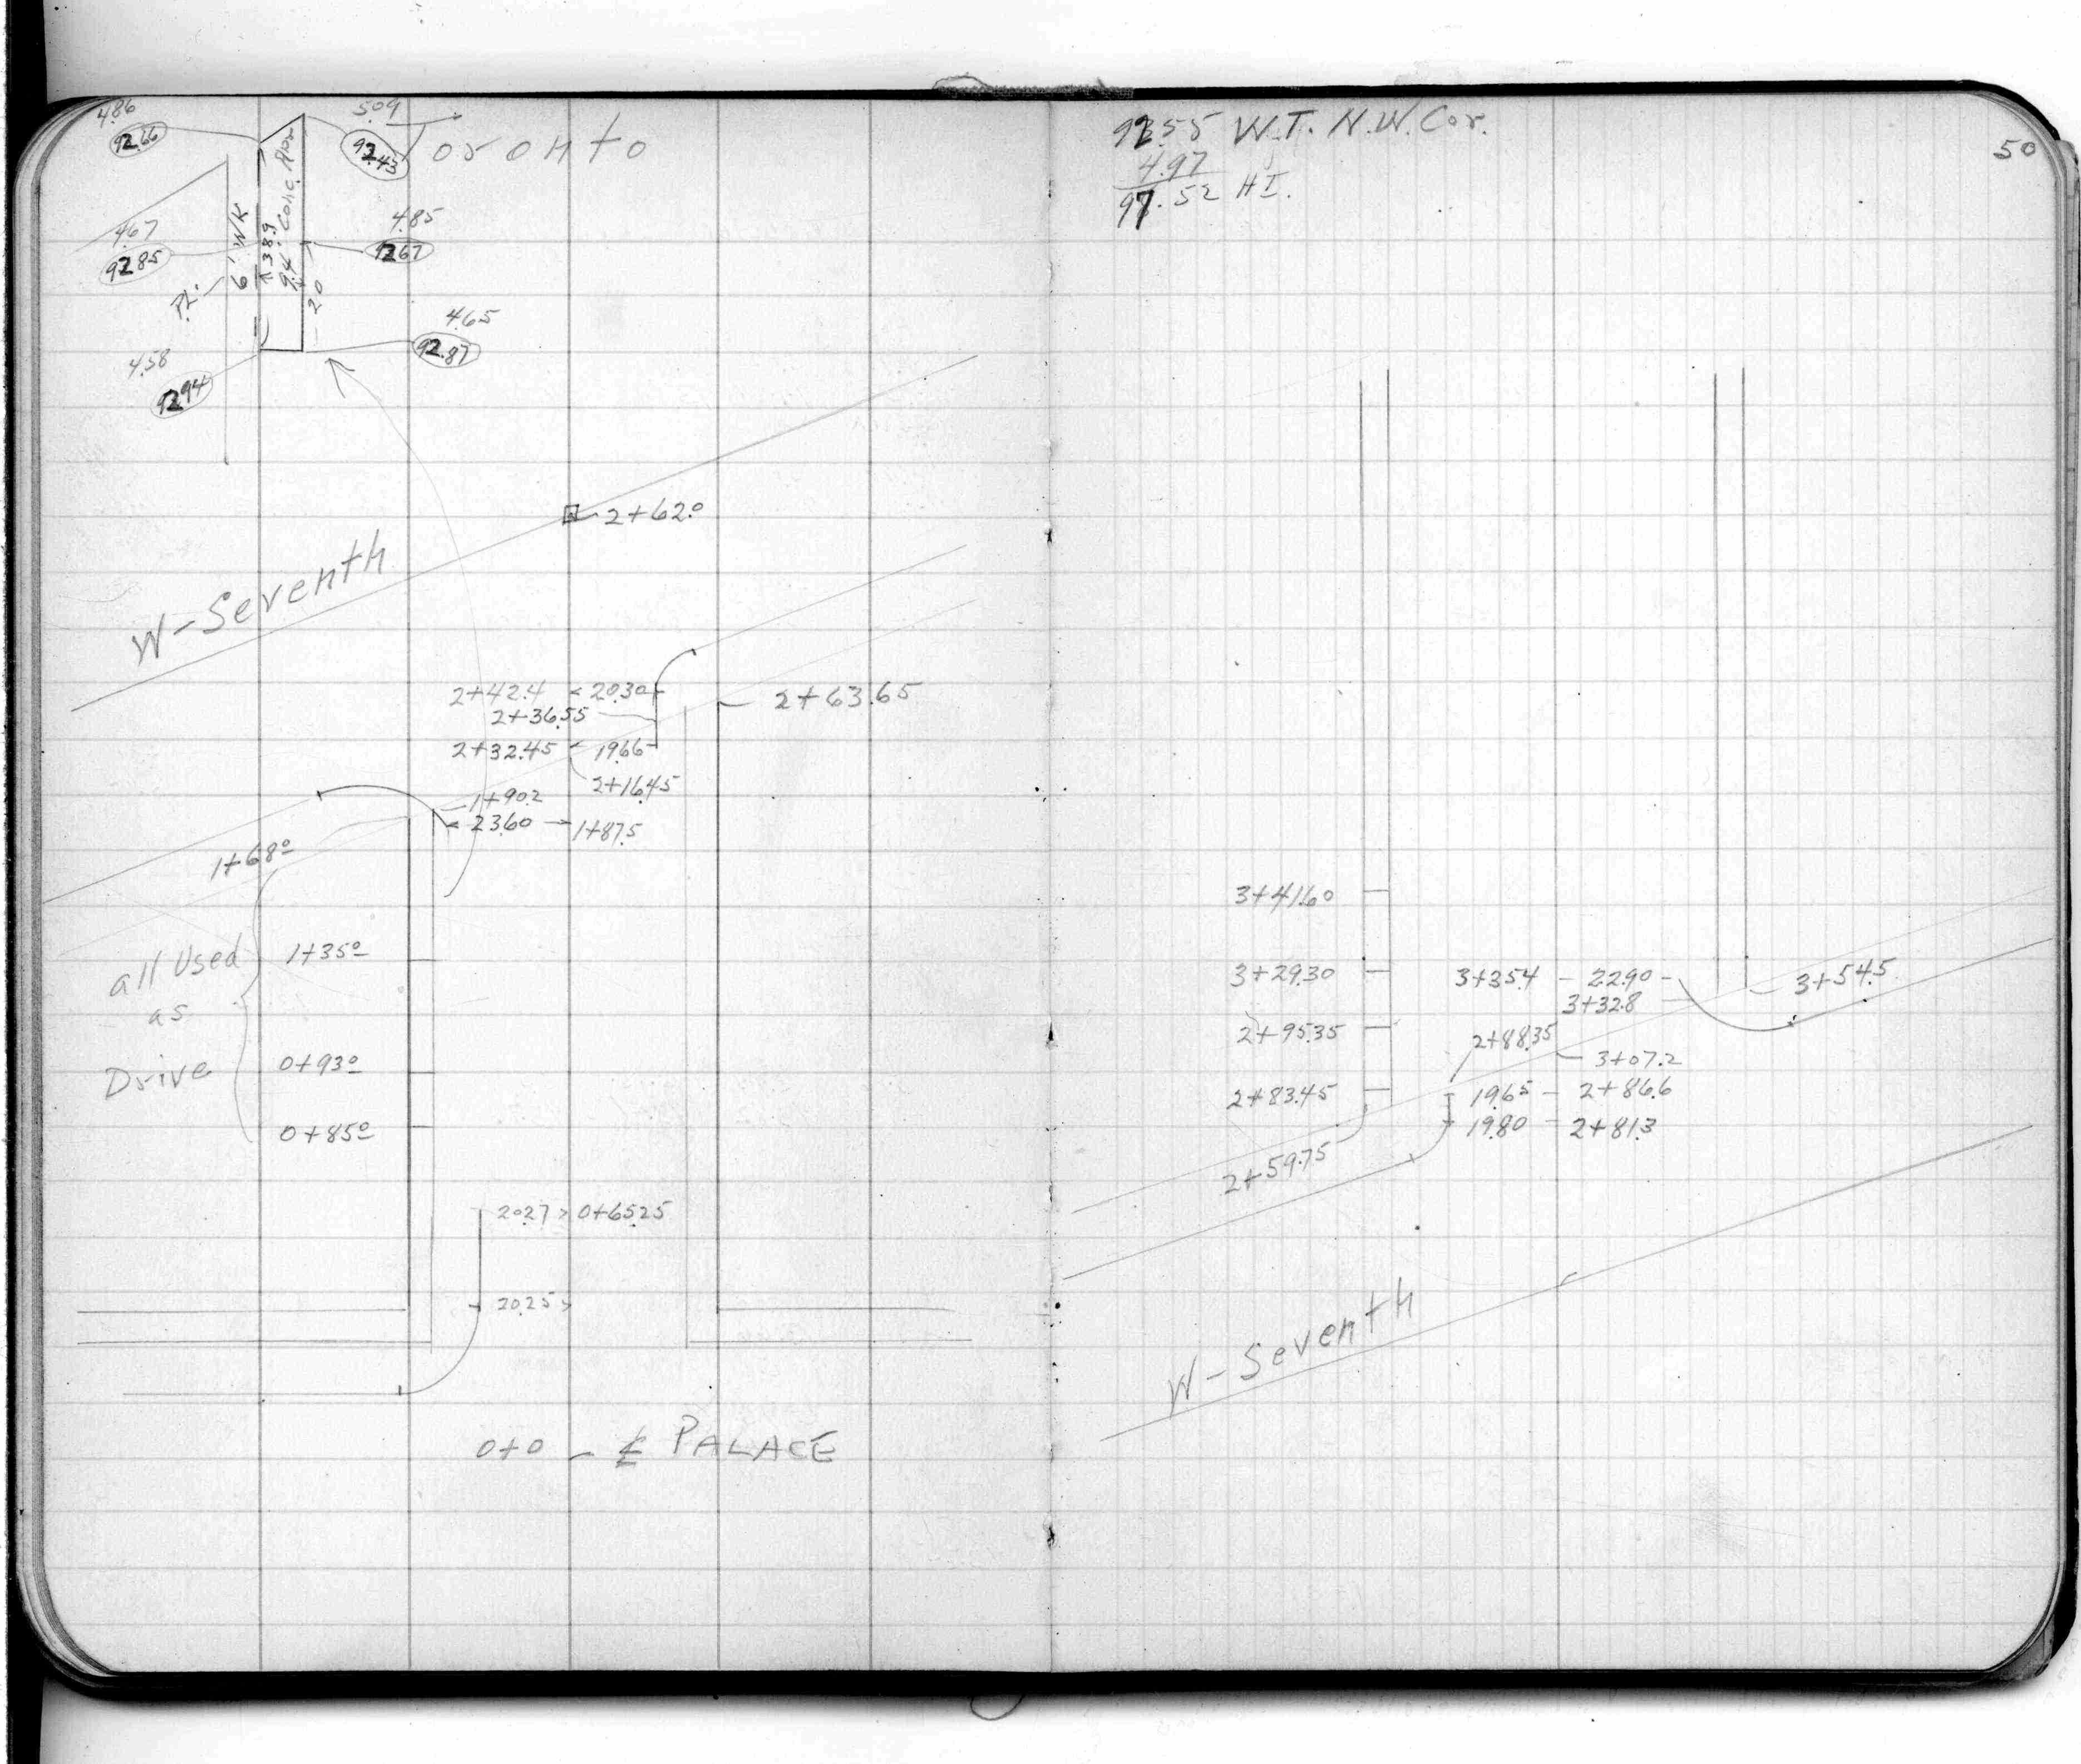 4.86
92.66
5.09
92.43
Toronto
6' WK
38.9
9.4' Conc. Apr.
20
4.67
92.85
4.85
92.67
PL.
4.65
92.87
4.58
92.94
2+62.0
W-Seventh
2+42.4 < 20.30
2+36.55
2+63.65
2+32.45 < 19.66
2+16.45
1+90.2
< 23.60 → 1+87.5
1+68.0
all Used
as
Drive
1+35.0
0+93.0
0+85.0
20.27 > 0+65.25
20.25 >
0+0 - ℄ PALACE
92.55 W.T. N.W. Cor.
4.97
97.52 HI.
50
3+41.60
3+29.30
3+35.4 - 22.90 -
3+54.5
3+32.8
2+95.35
2+88.35
3+07.2
2+83.45
19.65 - 2+86.6
19.80 - 2+81.3
2+59.75
W-Seventh